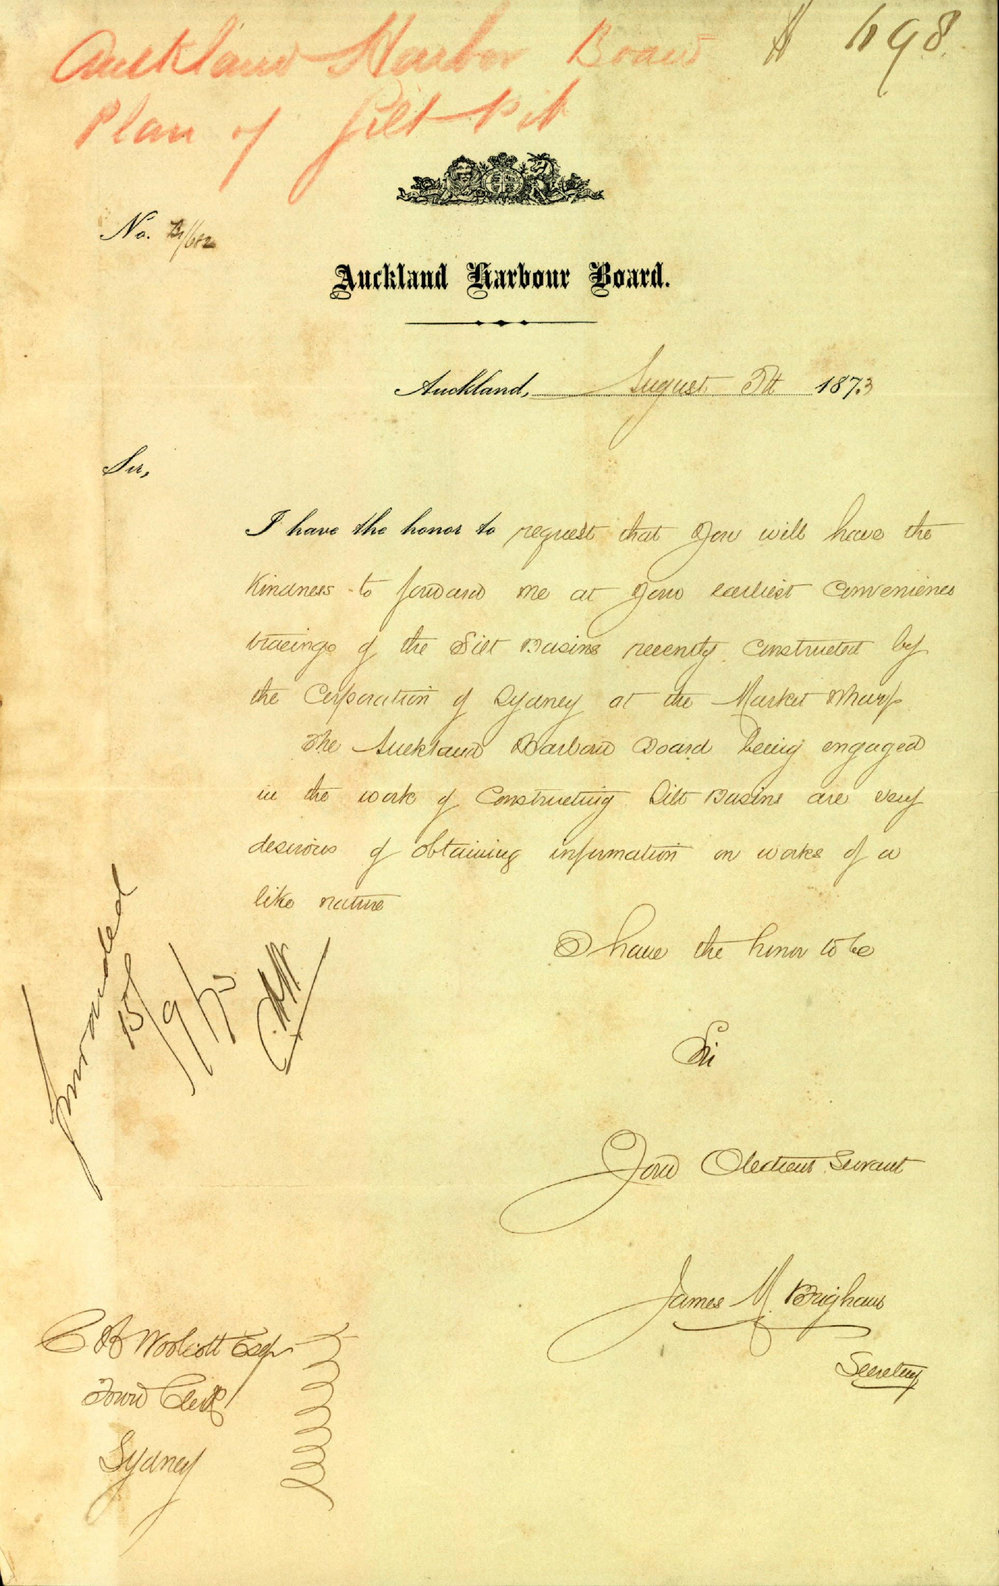 Auckland Harbor Board
698
Plan of Silt Pit
No.
Auckland Harbour Board.
Auckland, August 5th 1873
Sir,
I have the honor to request that you will have the
kindness to forward me at your earliest convenience
tracings of the Silt Basins recently constructed by
the Corporation of Sydney at the Market Wharf
The Auckland Harbour Board being engaged
in the work of constructing Silt Basins are very
desirous of obtaining information on works of a
like nature
I have the honor to be
Sir
Your Obedient Servant
James M. Brigham
Secretary
forwarded
15/9/73
C H Woolcott Esqr
Town Clerk
Sydney